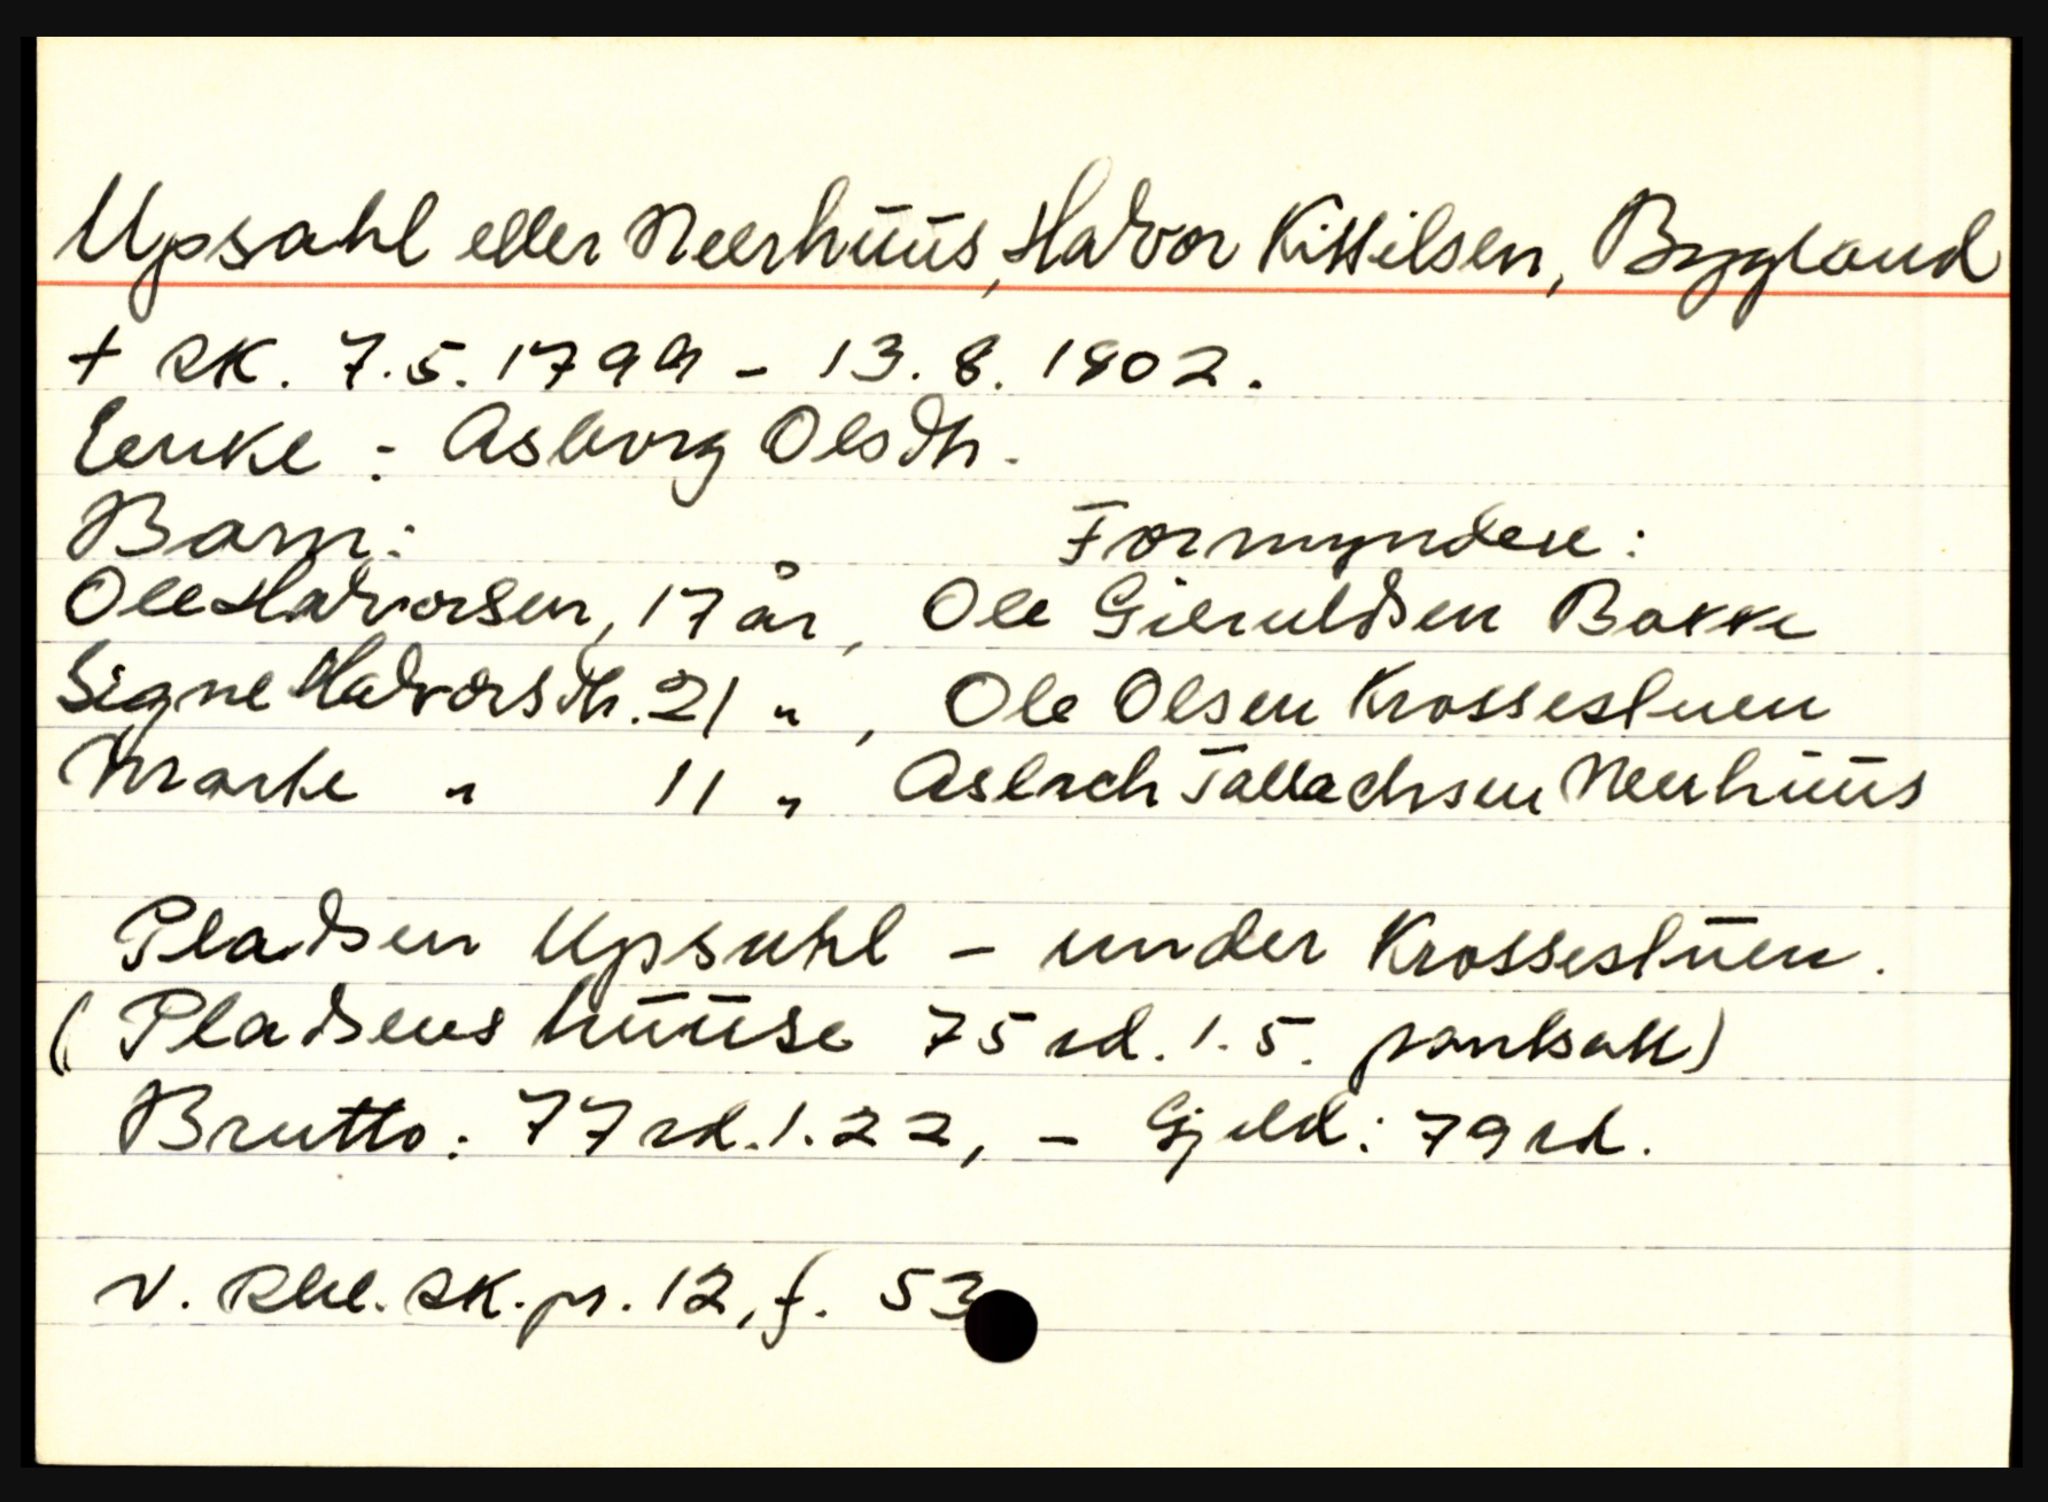 Upsahl eller Neerhūūs, Halvor Kittilsen, Bygland
+ sk. 7.5.1799 - 13.8.1802.
Enke: Asborg Olsdtr.
Barn: Formyndere:
Ole Halvorsen, 17 år, Ole Gieruldsen Bakke
Signe Halvorsdtr. 21 ", Ole Olsen Krossestuen
Marte " 11 " Aslach Tallachsen Neerhūūs
Pladsen Upsahl - under Krossestūen.
(Pladsens hūūse 75 rd. 1.5. pantsatt)
Brutto: 77 rd. 1.22, - Gjeld: 79 rd.
V. Rbl. sk. pr. 12, f. 53